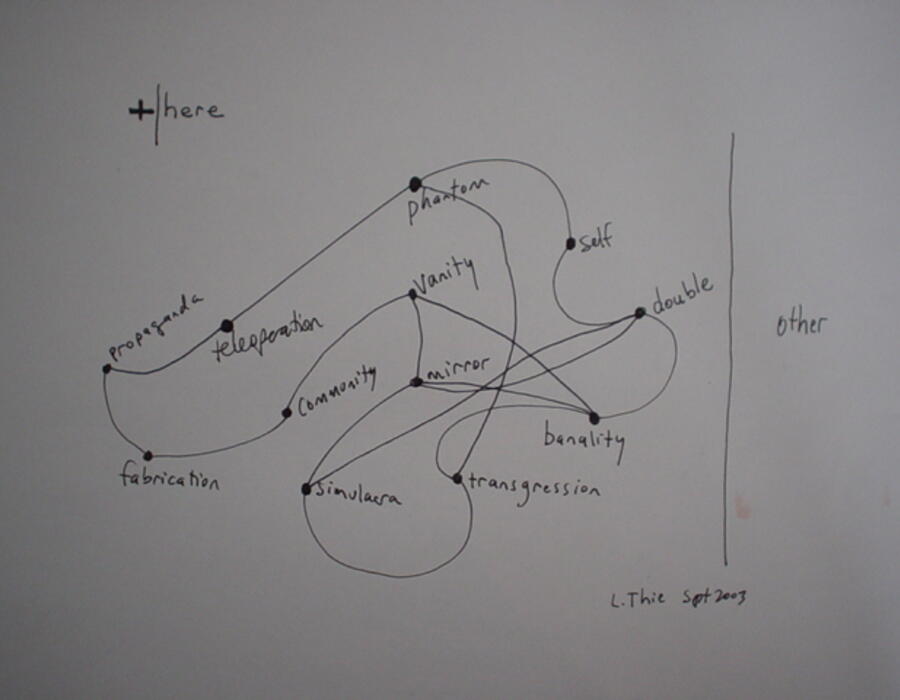 +|here
phantom
self
vanity
double
propaganda
teleoperation
other
mirror
community
banality
fabrication
simulacra
transgression
L.Thie Spt 2003